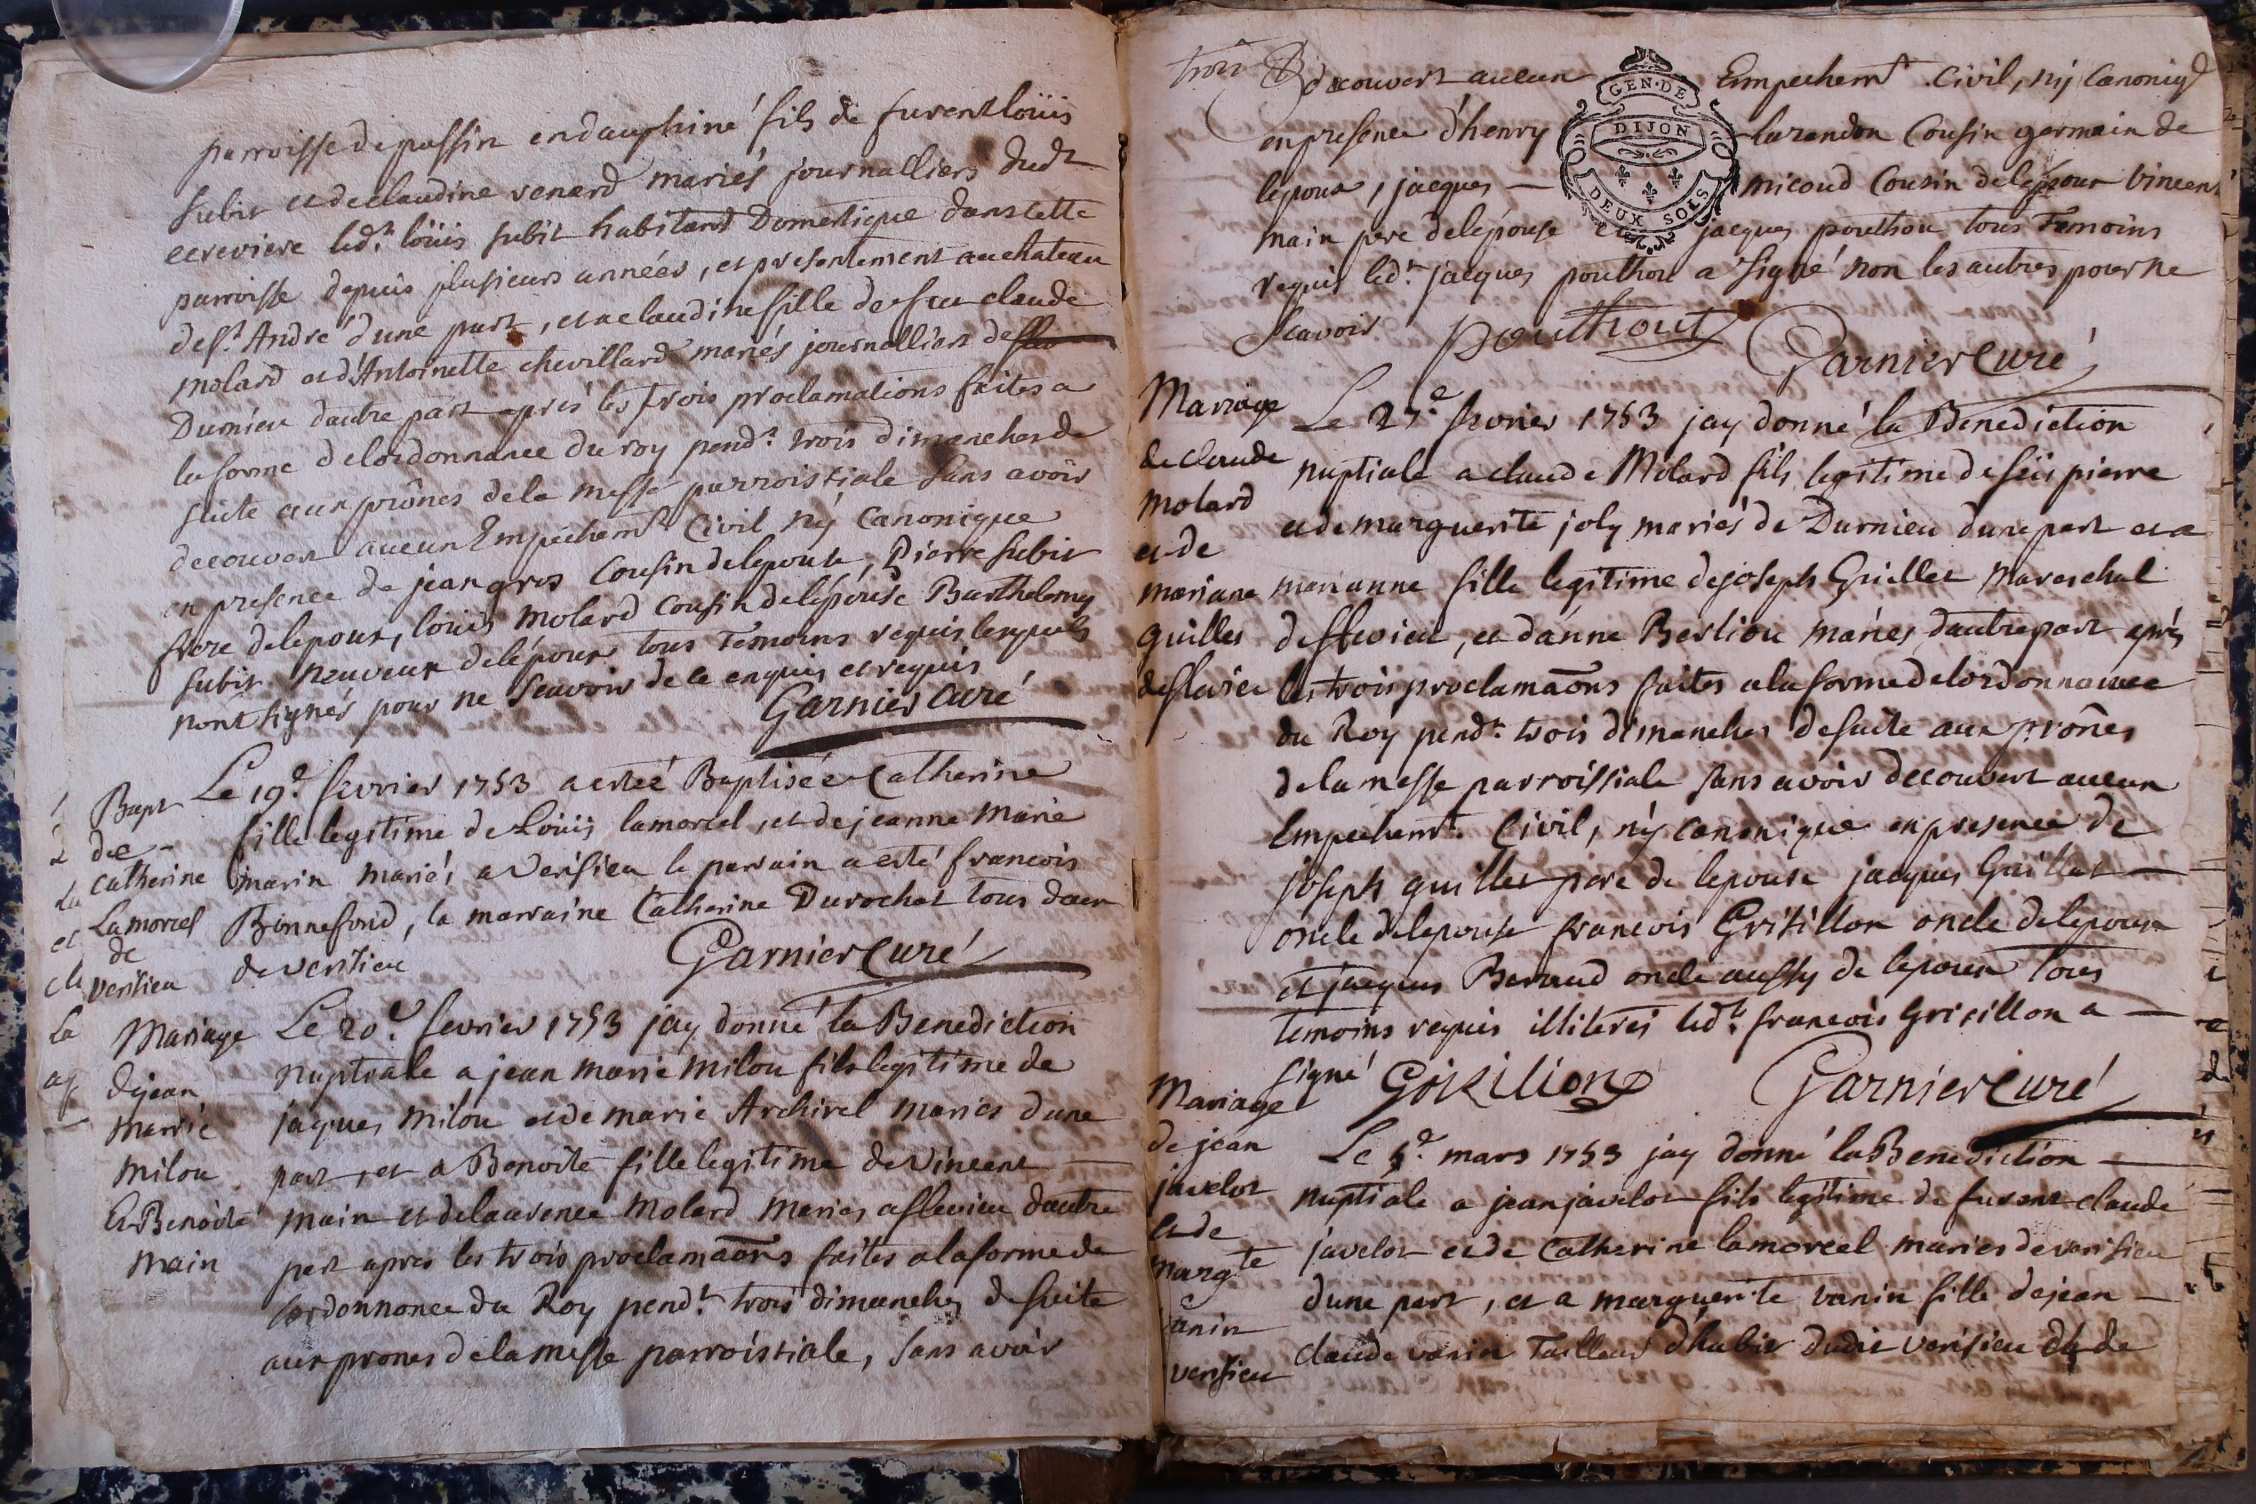 parroisse de passin en dauphiné fils de furent loüis
subit et de claudine renard mariés journalliers dudt
ecreviere ledt. loüis subit habitant Domestique dans cette
parroisse depuis plusieurs années, et presentement au chateau
de st. André d'une part, et a claudine fille de feu claude
molard et d'Antoinette chevillard mariés journalliers de
Dumieu dautre part apres les trois proclamations faites a
la forme de lordonnance du roy pendt. trois dimanches de
suite aux prônes de la messe parroissiale sans avoir
decouvert aucun Empechemt Civil ny Canonique
en presence de jean gros Cousin de lepouse, Pierre subit
frere de lepoux, loüis molard cousin de lépouse Barthelemy
subit neuveux de lépoux tous Temoins requis lesquels
nont signés pour ne scavoir de ce enquis et requis
Garnier curé
Bapt
de
catherine
Lamorcel
de
versieu
Le 19e. fevrier 1753 a esteé Baptisée Catherine
fille legitime de Loüis lamorcel, et de jeanne Marie
marin mariés a Versieu le parrain a esté francois
Bonnefond, la marraine Catherine Durochat tous deux
de versieu Garnier Curé
Mariage
de jean
marie
milou
Et Benoite
main
Le 20e. fevrier 1753 jay donné la Benediction
nuptiale a jean marie milou fils legitime de
jaques milou et de marie Archirel mariés d'une
part, et a Benoite fille legitime de Vincent
main et de laurence molard mariés a flevieu dautre
part apres les trois proclamaons faites a la forme de
lordonnance du Roy pendt. trois dimanches de suite
aux prones de la messe parroissiale, sans avoir
trois
decouvert aucun Empechemt Civil, ny Canoniq
en presence d'henry larandon Cousin germain de
lepoux, jacques micoud Cousin de lepoux Vincent
main pere de lépouse et jacques pouthou tous Temoins
requis ledt. jacques pouthou a signé non les autres pour ne
scavoir Pouthout Garnier Curé
GEN·DE
DIJON
DEUX SOLS
Mariage
de claude
molard
et de
mariane
guilles
de flevieu
Le 27e. fevrier 1753 jay donné la Benediction
nuptiale a claude Molard fils legitime de feüs pierre
et de marguerite joly mariés de Dumieu dune part et a
marianne fille legitime de joseph Guillet mareschal
de flevieu, et d'anne Berliou mariés, dautre part aprés
les trois proclamaons faites a la forme de lordonnance
du Roy pendt. trois dimanches de suite aux prônes
de la messe parroissiale sans avoir decouvert aucun
Empechemt. Civil, ny canonique en presence de
joseph guillet pere de lepouse jacques Guillet
oncle de lepouse francois Grisillon oncle de lepoux
et jacques Beraud oncle aussy de lepoux tous
temoins requis illiterés ledt. francois Grisillon a
signé Grizilion Garnier Curé
Mariage
de jean
javelot
et de
margte
vanin
versieu
Le 5e. mars 1753 jay donné la Benediction
nuptiale a jean javelot fils legitime de furent claude
javelot et de Catherine lamorcel mariés de versieu
dune part, et a marguerite vanin fille de jean
claude vanin Tailleur d'habit dudit versieu et de